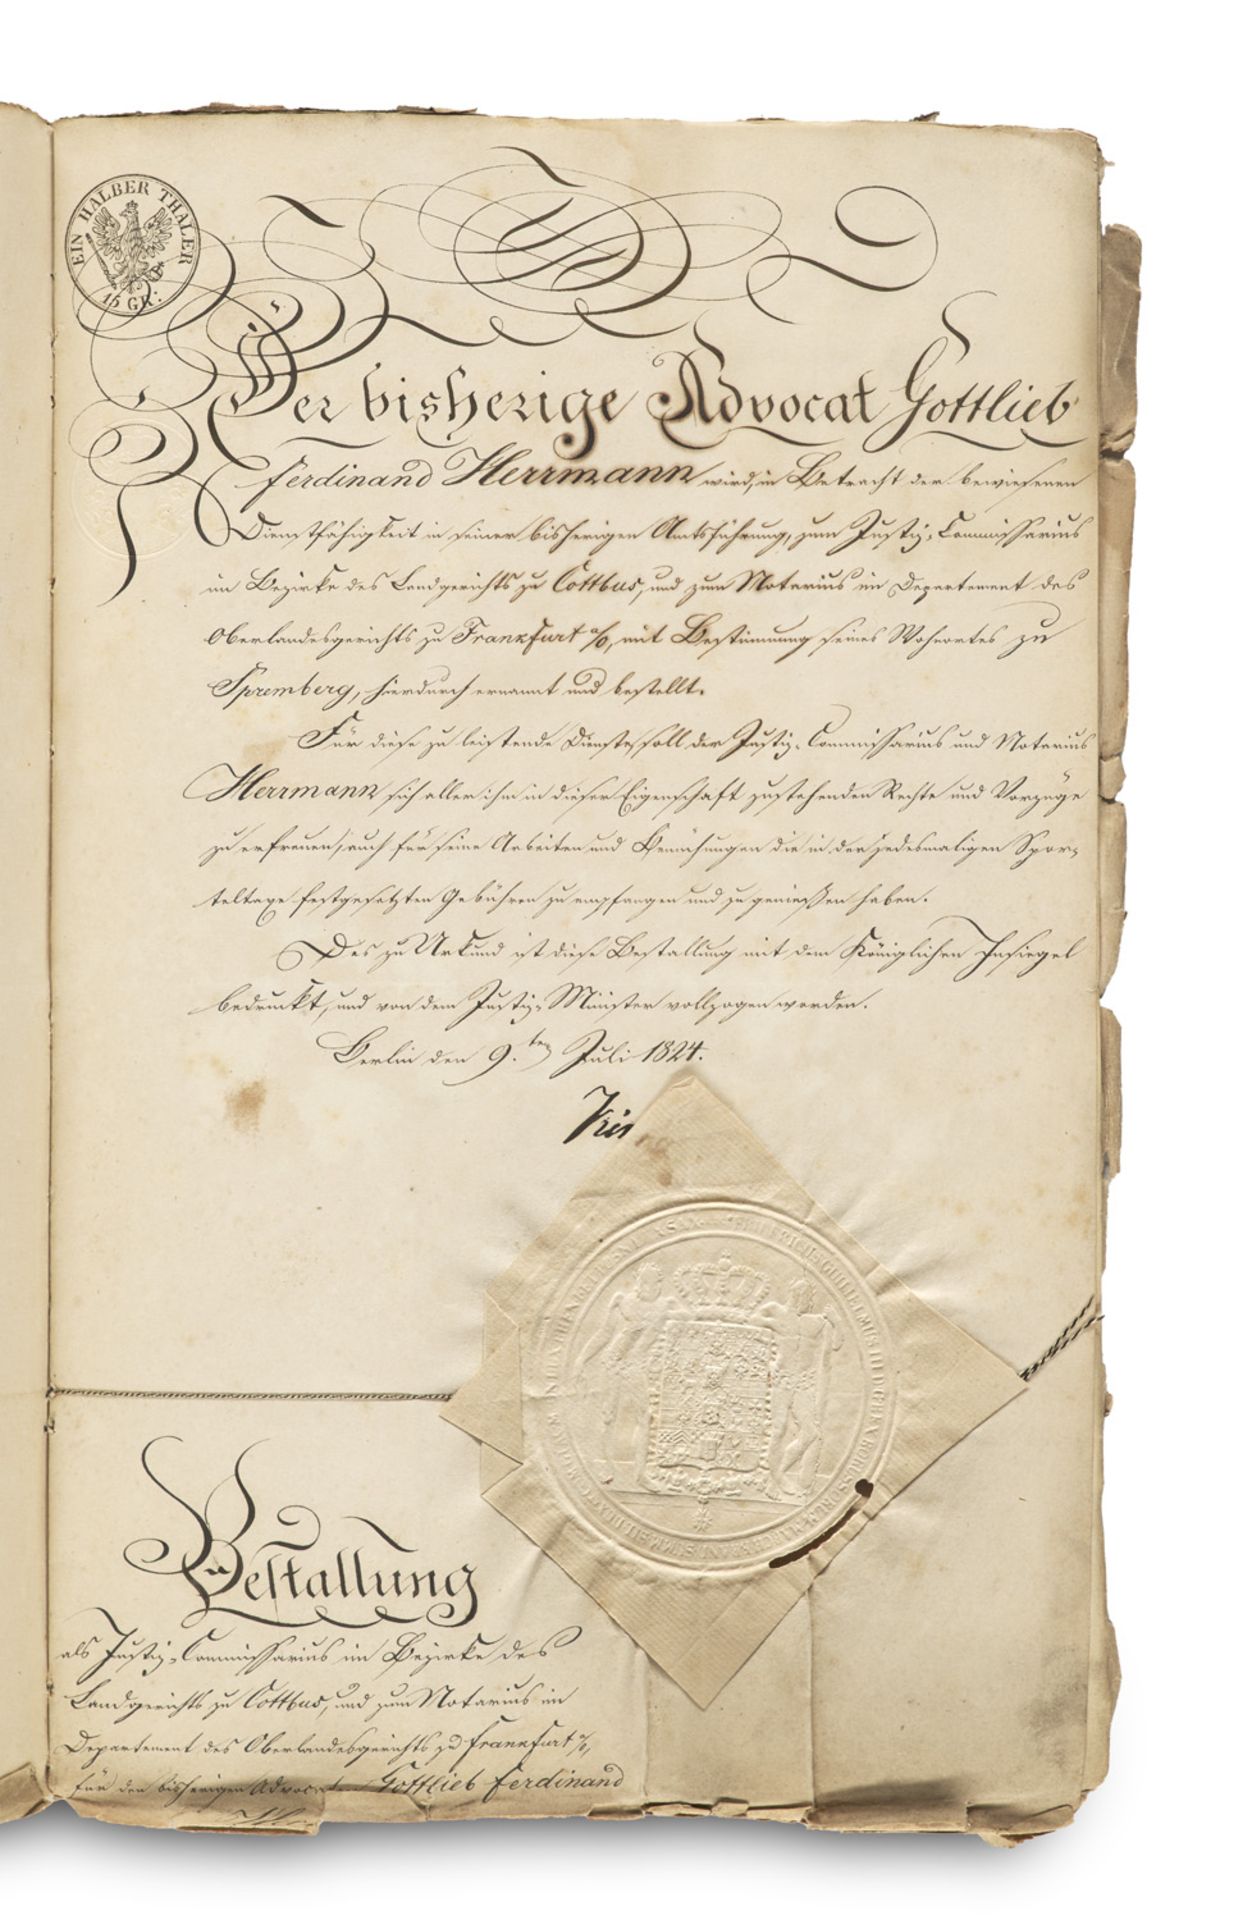 EIN HALBER THALER
15 GR:
Der bisherige Advocat Gottlieb
Ferdinand Herrmann wird, in Betracht der bewiesenen
Dienstfähigkeit in seiner bisherigen Amtsführung, zum Justiz-Commissarius
im Bezirke des Landgerichts zu Cottbus, und zum Notarius im Departement des
Oberlandesgerichts zu Frankfurt a/O, mit Bestimmung seines Wohnortes zu
Spremberg, hierdurch ernannt und bestellt.
Für diese zu leistende Dienste soll der Justiz-Commissarius und Notarius
Herrmann sich aller ihm in dieser Eigenschaft zustehenden Rechte und Vorzüge
zu erfreuen, auch für seine Arbeiten und Bemühungen die in der jedesmaligen Spor-
teltaxe festgesetzten Gebühren zu empfangen und zu genießen haben.
Des zu Urkund ist diese Bestallung mit dem Königlichen Insiegel
bedruckt, und von dem Justiz-Minister vollzogen worden.
Berlin den 9.ten Juli 1824.
FRIDERICUS GUILIELMUS III D.G. REX BORUSSORUM MARCH. BRAND.
Bestallung
als Justiz-Commissarius im Bezirke des
Landgerichts zu Cottbus, und zum Notarius im
Departement des Oberlandesgerichts zu Frankfurt a/O,
für den bisherigen Advocaten Gottlieb Ferdinand